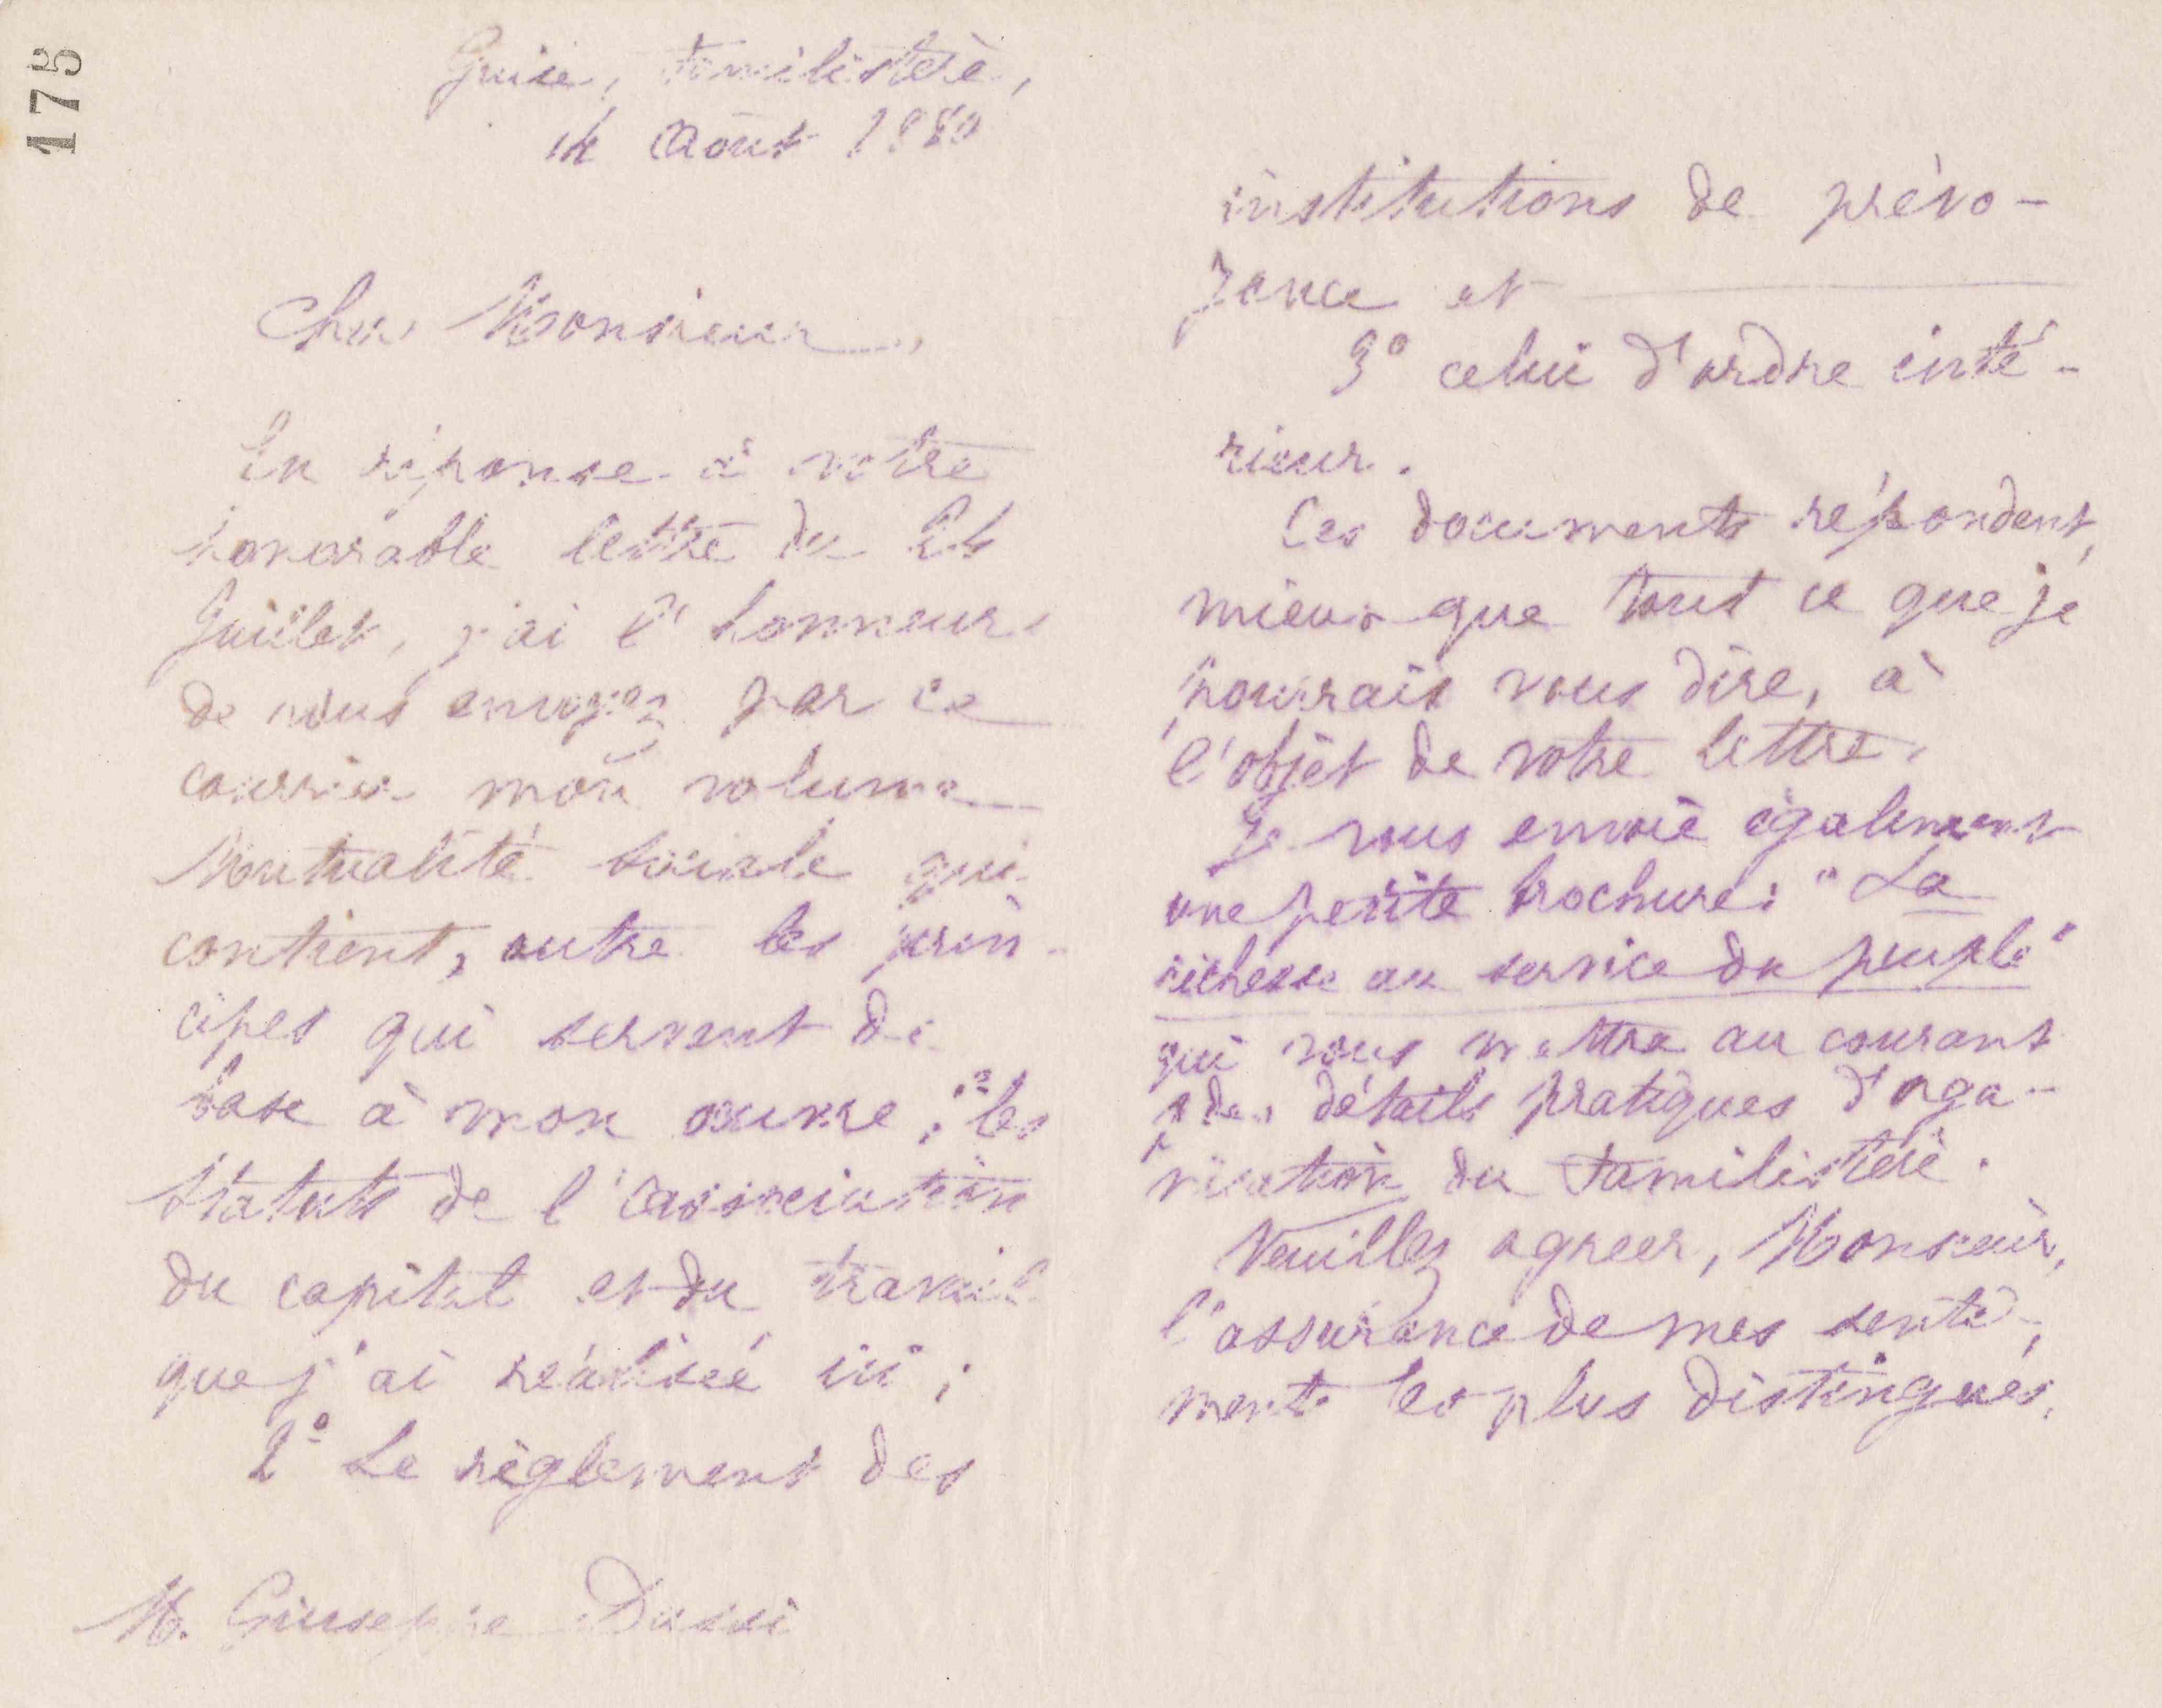 175
Guise, Familistère,
14 Août 1880
Cher Monsieur,
En réponse à votre
honorable lettre du 24
Juillet, j'ai l'honneur
de vous envoyer par ce
courrier mon volume
Mutualité Sociale qui
contient, outre les prin-
cipes qui servent de
base à mon œuvre : les
Statuts de l'Association
du capital et du travail
que j'ai réalisée ici ;
2° Le règlement des
M. Giuseppe Dassi
institutions de prévo-
yance et
3° celui d'ordre inté-
rieur.
Ces documents répondent,
mieux que tout ce que je
pourrais vous dire, à
l'objet de votre lettre.
Je vous envoie également
une petite brochure : "La
richesse au service du peuple"
qui vous mettra au courant
des détails pratiques d'orga-
nisation du Familistère.
Veuillez agréer, Monsieur,
l'assurance de mes senti-
ments les plus distingués.